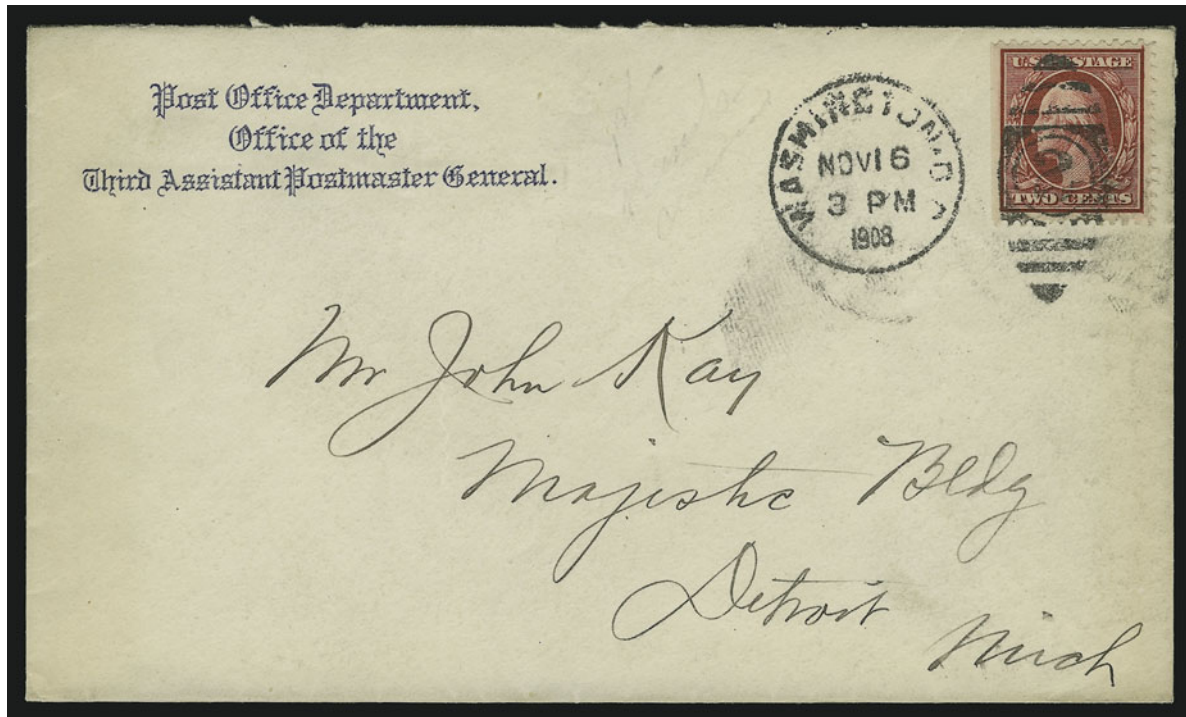 Post Office Department,
Office of the
Third Assistant Postmaster General.
WASHINGTON, D.C.
NOV 16
3 PM
1908
U.S. POSTAGE
TWO CENTS
Mr John Kay
Majestic Bldg
Detroit
Mich